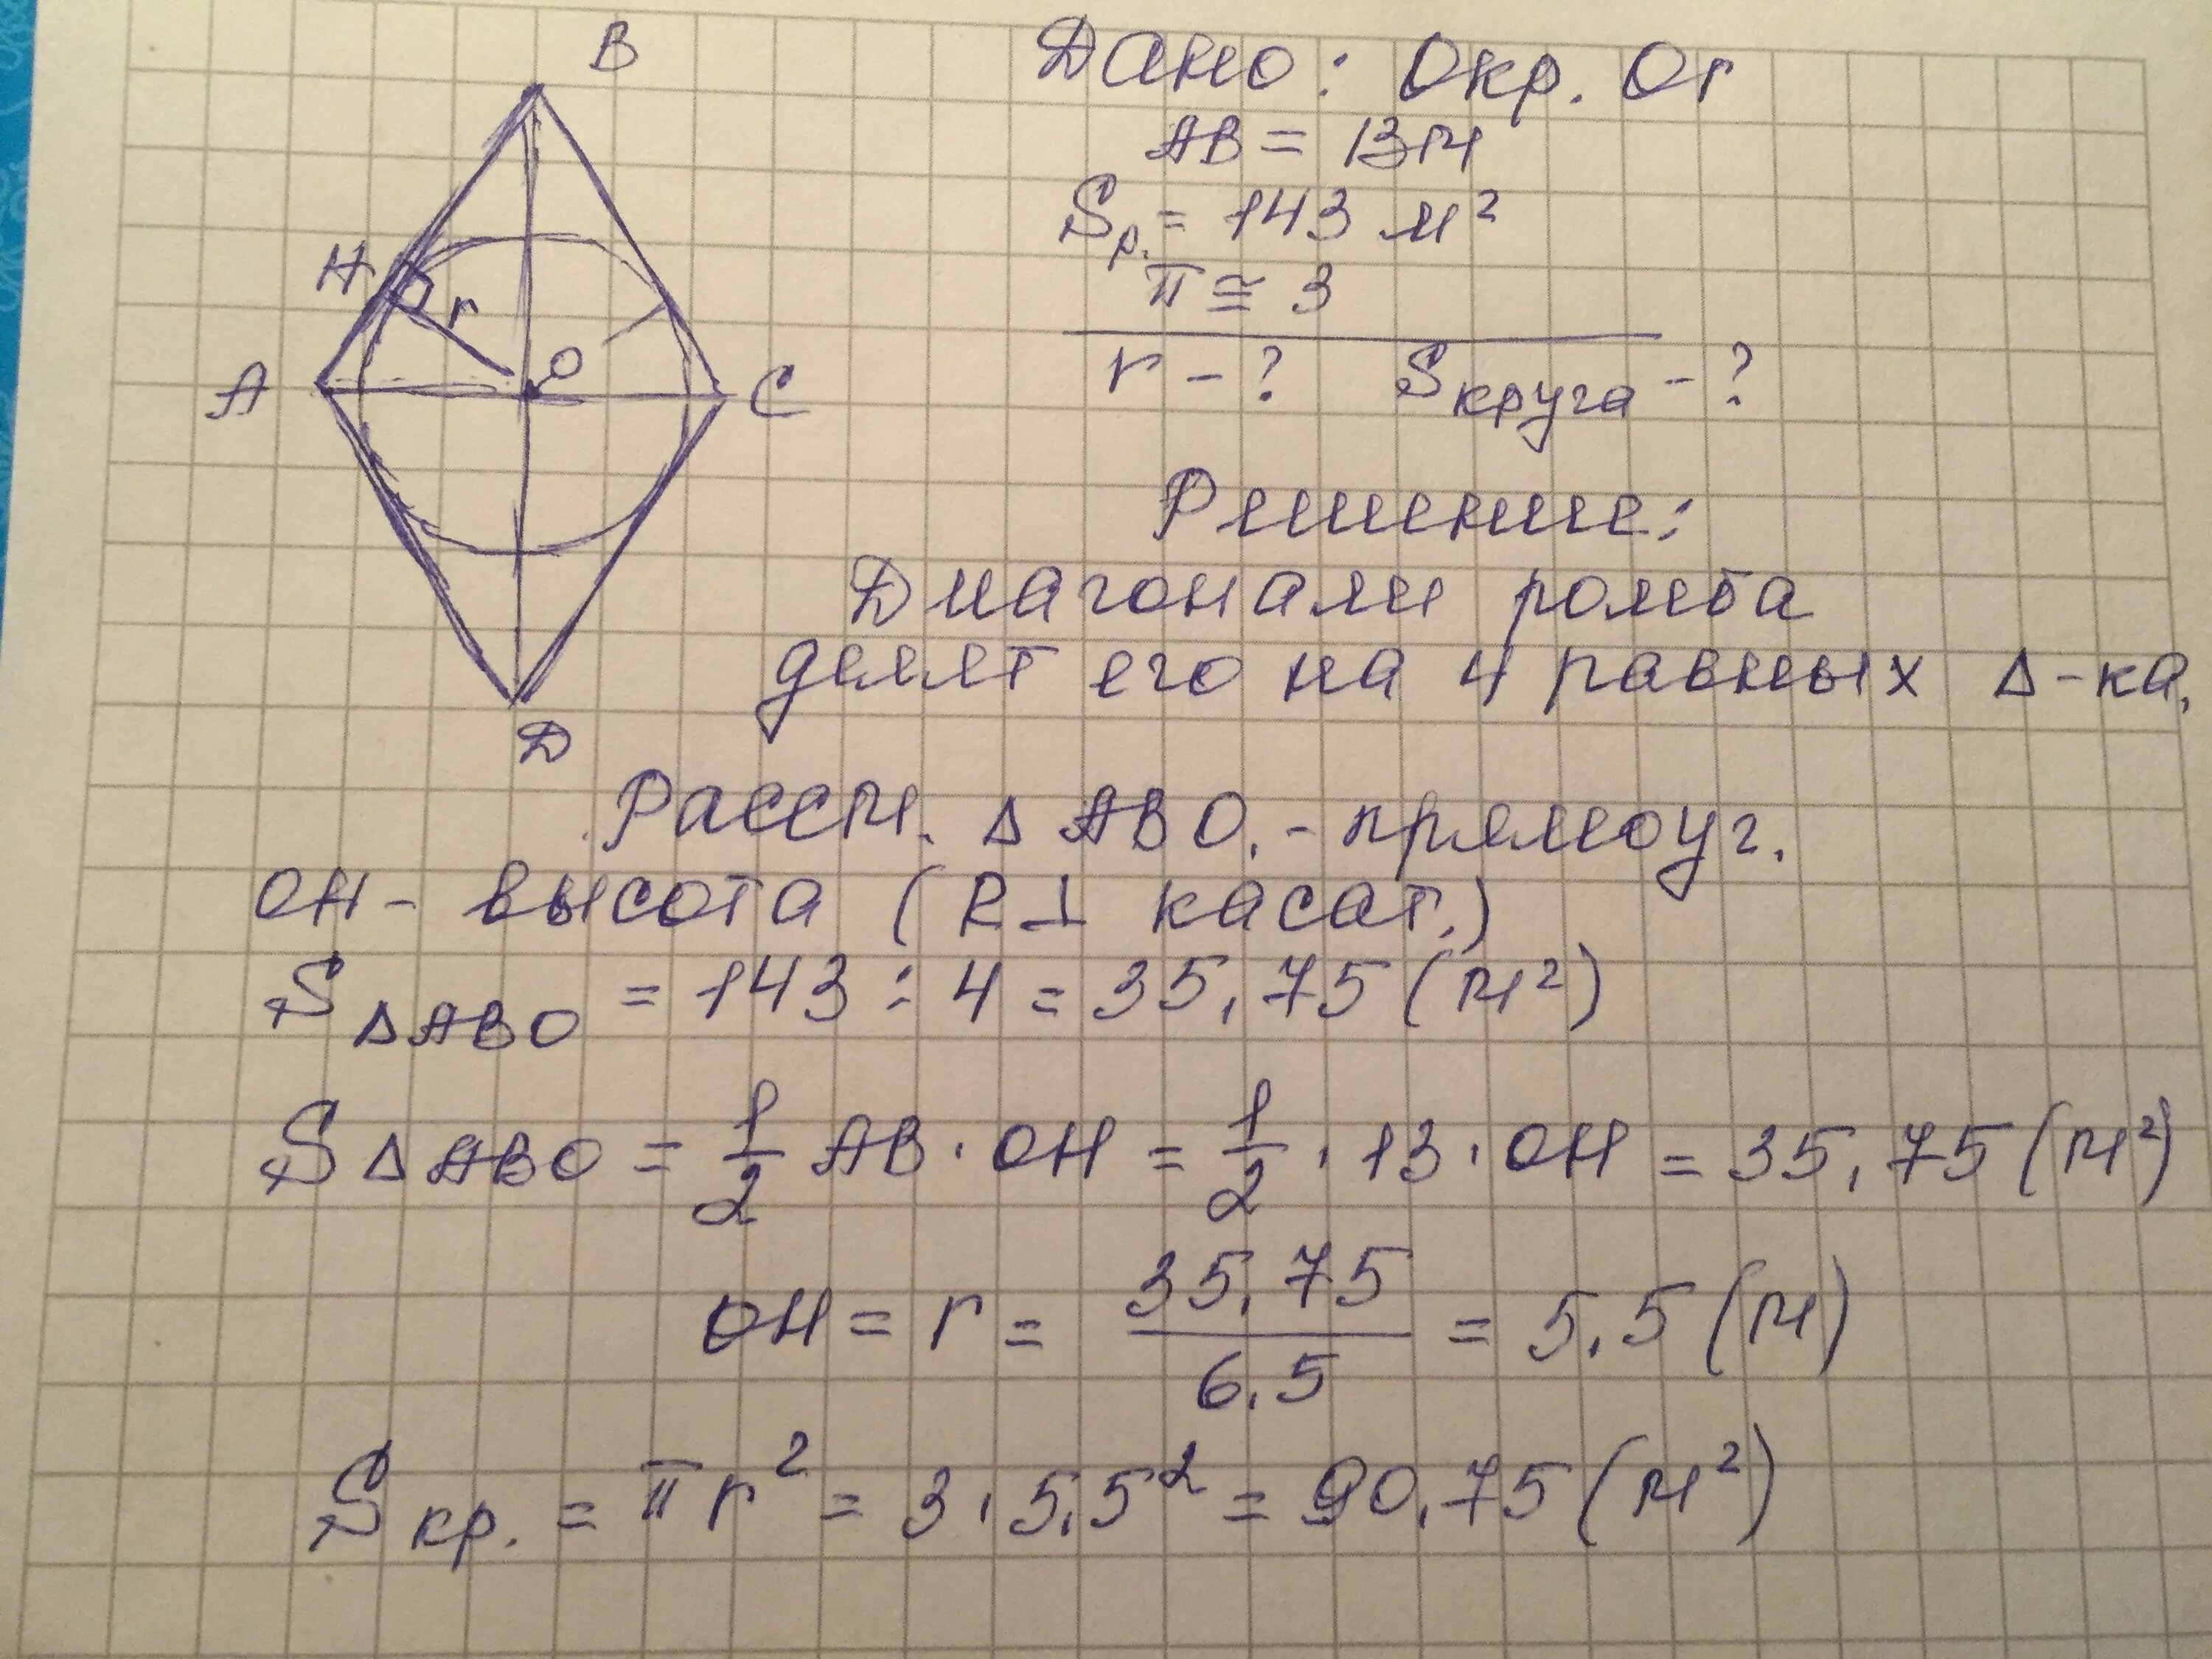 B
H
r
O
A
C
D
Дано: Окр. Or
AB = 13м
Sр. = 143 м²
π ≅ 3
r - ? Sкруга - ?
Решение:
Диагонали ромба
делят его на 4 равных Δ-ка.
Рассм. Δ ABO. - прямоуг.
OH - высота (R⊥ касат.)
SΔABO = 143 : 4 = 35,75 (м²)
SΔABO = 1/2 AB · OH = 1/2 · 13 · OH = 35,75 (м²)
OH = r = 35,75/6,5 = 5,5 (м)
Sкр. = πr² = 3 · 5,5² = 90,75 (м²)